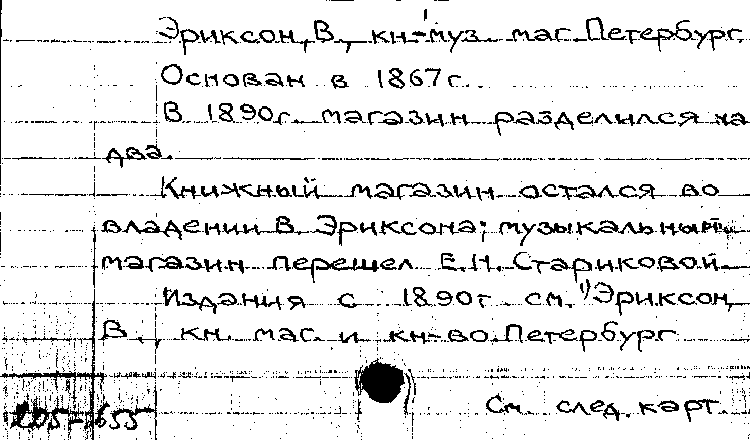 Эриксон, В., кн-муз. маг. Петербург.
Основан в 1867г.
В 1890г. магазин разделился на
два.
Книжный магазин остался во
владении В. Эриксона; музыкальный
магазин перешел Е.Н. Стариковой.
Издания с 1890г. см. 1) Эриксон,
В., кн. маг. и кн-во. Петербург
205-655
См. след. карт.